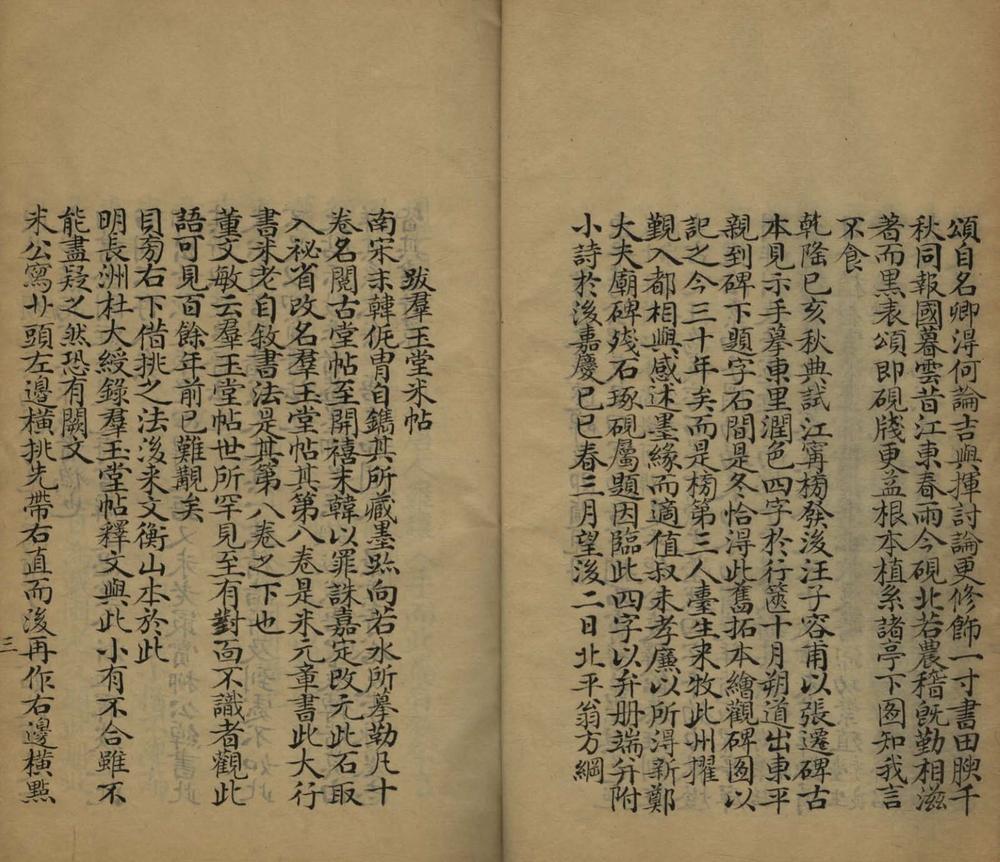 頌自名卿得何論吉興揮討論更修飾一寸書田腴千
秋同報國暮雲昔江東春雨今硯北若農稽旣勤相滋
著而黒表頌即硯牋更益根本植系諸亭下圖知我言
不食
乾隆己亥秋典試江寧榜發後汪子容甫以張遷碑古
本見示手摹東里潤色四字於行篋十月朔道出東平
親到碑下題字石間是冬恰得此舊拓本繪觀碑圖以
記之今三十年矣而是榜第三人臺生来牧此州擢
觐入都相與感述墨緣而適值叔未孝廉以所得新鄭
大夫廟碑殘石琢硯屬題因臨此四字以弁册端并附
小詩於後嘉慶己巳春三月望後二日北平翁方綱
跋羣玉堂米帖
南宋末韓侂胄自鐫其所藏墨跡向若水所摹勒凡十
卷名閱古堂帖至開禧末韓以罪誅嘉定改元此石取
入祕省改名羣玉堂帖其第八卷是米元章書此大行
書米老自敘書法是其第八卷之下也
董文敏云羣玉堂帖世所罕見至有對面不識者觀此
語可見百餘年前已難觀矣
目旁右下借挑之法後来文衡山本於此
明長洲杜大綬錄羣玉堂帖釋文與此小有不合雖不
能盡疑之然恐有闕文
米公寫廾頭左邊橫挑先帶右直而後再作右邊橫點
三